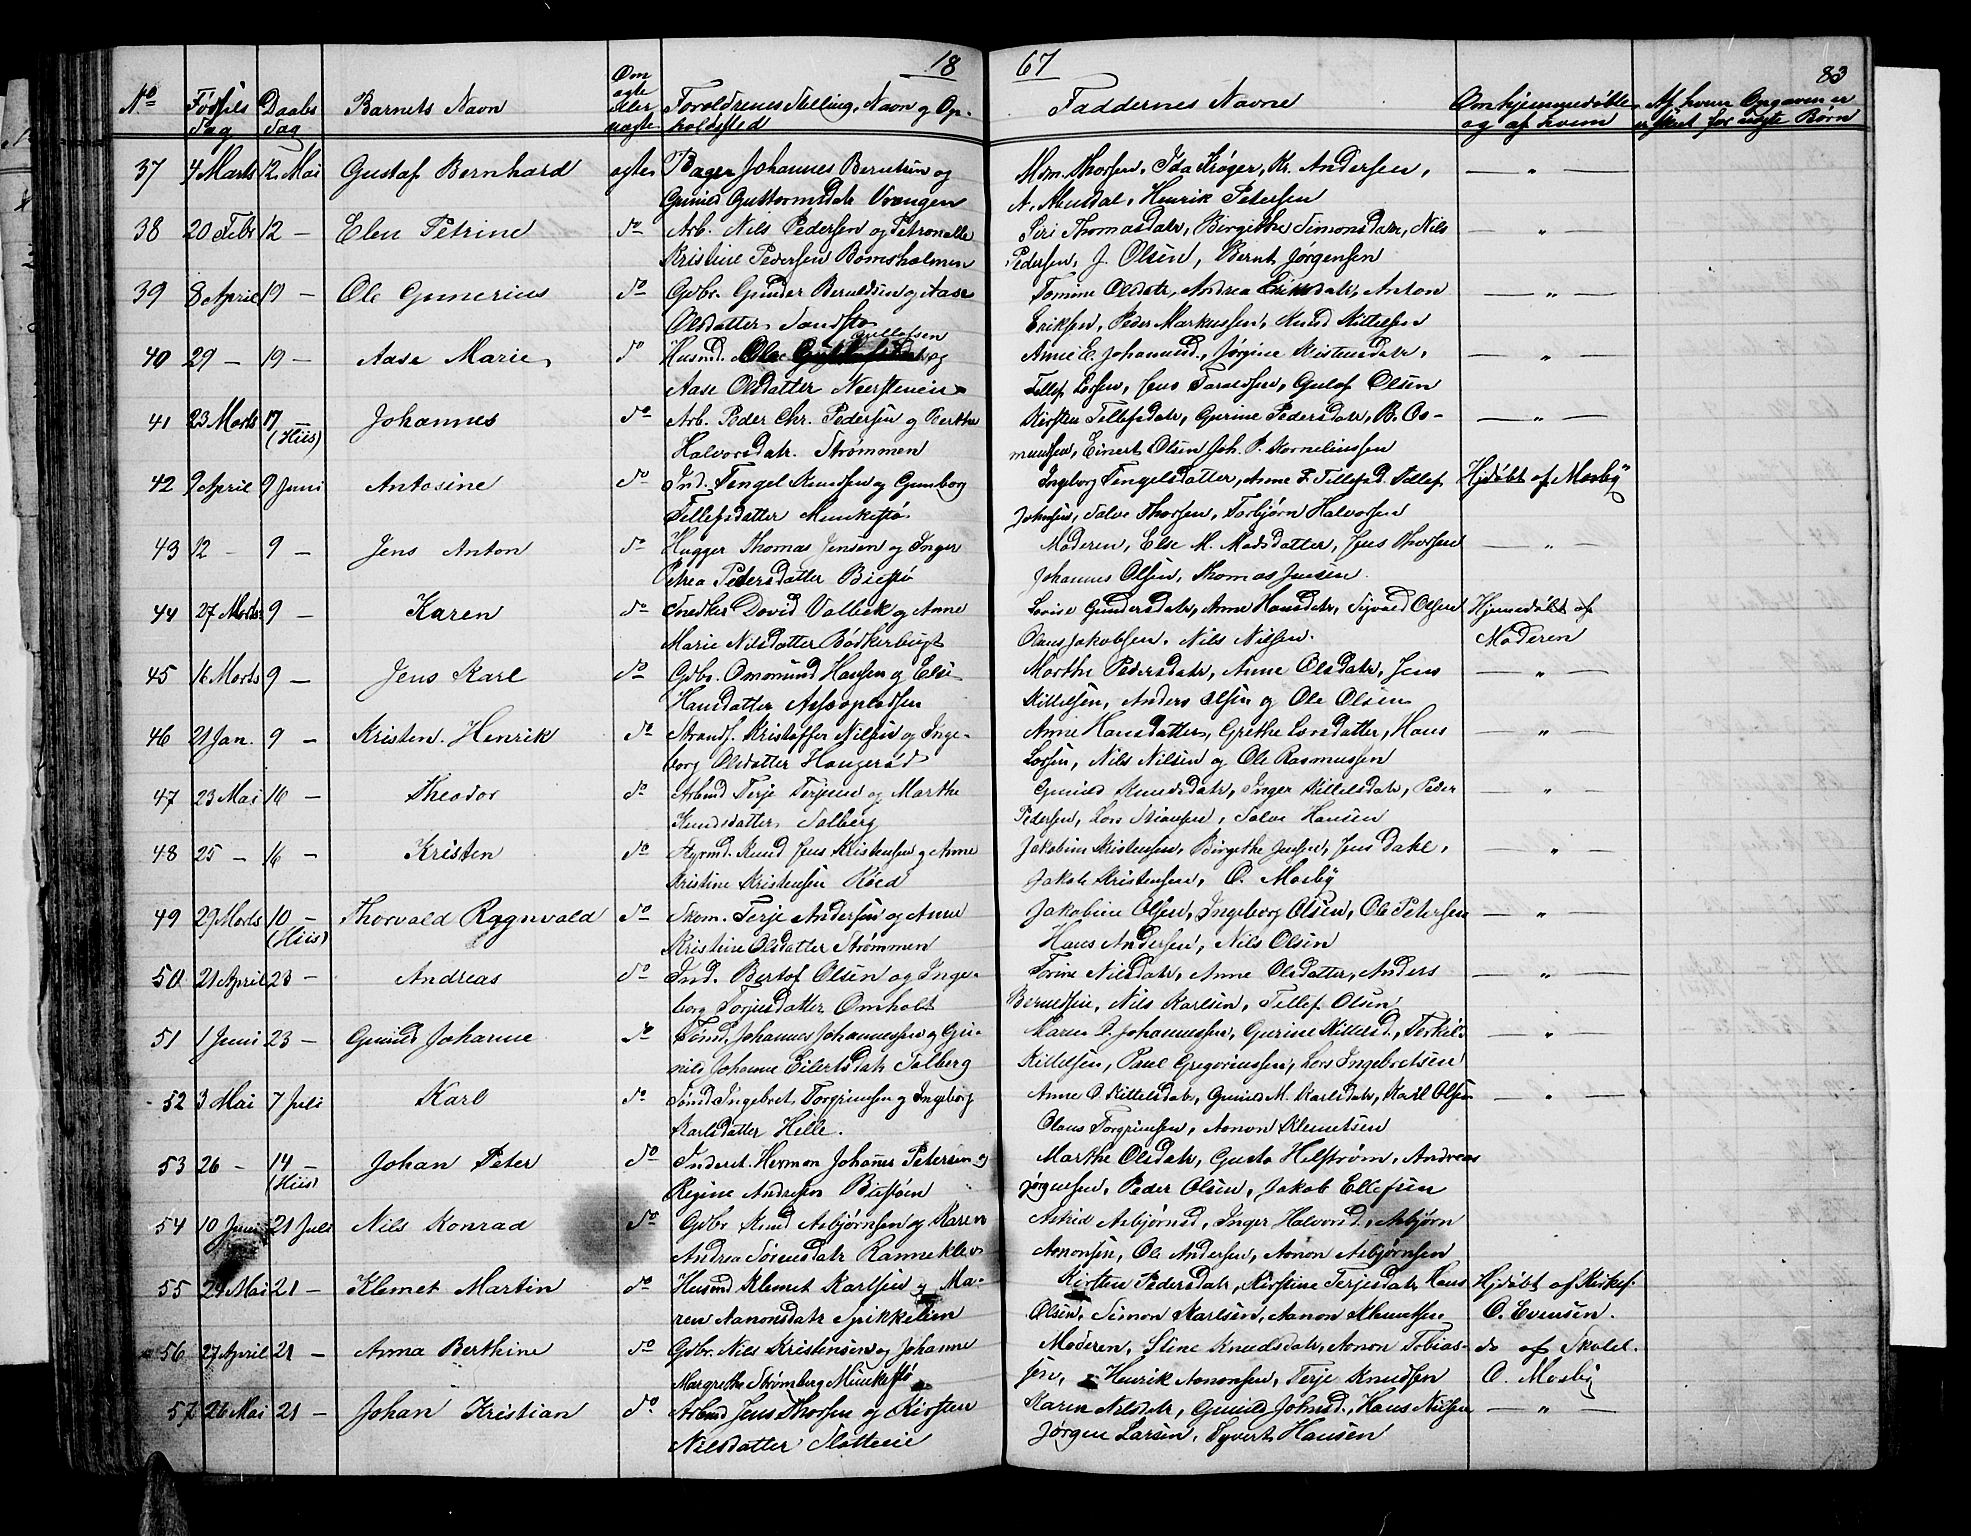 18 67 83
No Fødsels Dag Daabs Dag Barnets Navn Om ægte eller uægte Forældrenes Stilling, Navn og Opholdsted Faddernes Navne Om hjemmedøbte og af hvem Af hvem Opgaven er for uægte Børn
37 4 Marts 12. Mai Gustaf Bernhard ægte Bager Johannes Berntsen og Mdm. Thorsen, Ida Krøger, Kr. Andersen, — " —
Gunild Guttormsdatr Vrangen A. Musdal, Henrik Petersen
38 20 Febr 12 — Elen Petrine do Arb. Nils Pedersen og Petronelle Siri Thomasdatr, Birgithe Simonsdatr, Nils — " —
Kristine Pedersen Bomsholmen Pedersen, J. Olsen, Bernt Jørgensen
39 8 April 19 — Ole Gunerius do Gdbr. Gunder Beruldsen og Aase Tomine Olsdatr, Andrea Eriksdatr, Anton — " —
Olsdatter Sandstø Eriksen, Peder Markussen, Knud Kittelsen
40 29 — 19 — Aase Marie do Husmd. Ole Gullofsen og Anne E. Johannesd., Jørgine Kistensdatr, — " —
Aase Olsdatter Neersteneie Tellef Larsen, Jens Taraldsen, Gulof Olsen
41 23 Marts 17 — (Hiis) Johannes do Arb. Peder Chr. Pedersen og Berthe Kirsten Tellefsdatr, Gurine Pedersdatr, B. Os- — " —
Halvorsdatr. Strømmen mundsen, Einert Olsen Joh. P. Korneliussen
42 9 April 9 Juni Antosine do Ind. Tengel Knudsen og Gunborg Ingeborg Tengelsdatter, Anne T. Tellefsd. Tellef Hjdøbt af Mosby
Tellefsdatter Munkestø Johnsen, Salve Thorsen, Torbjørn Halvorsen
43 12 — 9 — Jens Anton do Hugger Thomas Jensen og Inger Moderen, Else M. Madsdatter, Jens Thorsen — " —
Petrea Pedersdatter Biestø Johannes Olsen, Thomas Jensen.
44 27 Marts 9 — Karen do Snedker David Valbek og Anne Lovise Gundersdatr, Anne Hansdatr, Sigvald Olsen Hjemmedøbt af
Marie Nilsdatter Bødkerbugt Olaus Jakobsen, Nils Nilsen. Moderen
45 16 Marts 9 — Jens Karl do Gdbr. Omomund Hansen og Else Marthe Pedersdatr, Anne Olsdatr, Jens — " —
Hansdatter Assopladsen Kittelsen, Anders Olsen og Ole Olsen
46 21 Jan. 9 — Kristen Henrik do Strands. Kristoffer Nilsen og Inge- Anne Hansdatter, Grethe Larsdatter, Hans — " —
borg Olesdatter Haugerød Larsen, Nils Nilsen og Ole Rasmussen
47 23 Mai 16 — Theodor do Arbmd Terje Terjesen og Marthe Gunild Knudsdatr, Inger Kittelsdatr, Peder — " —
Knudsdatter Salberg Pedersen, Lars Stiansen, Salve Hansen
48 25 — 16 — Kristen do Styrmd. Knud Jens Kristensen og Anne Jakobine Kristensen, Birgithe Jensen, Jens Dahl, — " —
Kristine Kristensen Röed Jakob Kristensen, O. Mosby
49 29 Marts 10 — (Hiis) Thorvald Ragnvald do Skom. Terje Andersen og Anne Jakobine Olsen, Ingeborg Olsen, Ole Petersen — " —
Kristine Olsdatter Strømmen Hans Andersen, Nils Olsen
50 21 April 23 — Andreas do Ind. Bertof Olsen og Inge- Torine Nilsdatr, Anne Olsdatter, Anders — " —
borg Torjusdatter Omholt Berntsen, Nils Karlsen, Tellef Olsen
51 1 Juni 23 — Gunild Johanne do Tømd. Johannes Johannessen og Gu- Maren O. Johannessen, Gurine Kittelsd., Terkel — " —
nild Johanne Eilertsdatr Salberg Kittelsen, Paul Gregoriussen, Lars Ingebretsen
52 3 Mai 7 Juli Karl do Sømd Ingebret Torgrimsen og Ingeborg Anne O. Kittelsdatr, Gunild M. Karlsdatr, Karl Olsen — " —
Karlsdatter Hille. Olaus Torgrimsen, Aanon Klemetsen
53 26 — 14 — (Hiis) Johan Peter do Inderst. Herman Johanes Petersen og Marthe Olsdatr, Gusta Helstrøm, Andreas
Regine Andresen Bustøen Jørgensen, Peder Olsen, Jakob Ellefsen
54 10 Juni 21 Juli Nils Konrad do Gdbr Knud Asbjørnsen og Karen Astrid Asbjørnsd, Inger Halvorsd., Asbjørn
Andrea Sørensdatr Ranneklev Aanonsen, Ole Andersen, Aanon Asbjørnsen
55 29 Mai 21 — Klemet Martin do Husmd Klemet Karlsen og Ma- Kirsten Pedersdatr, Kirstine Terjesdatr, Hans Hjdøbt af Kirkes.
ren Aanonsdatr Spikkelien Olsen, Simon Karlsen, Aanon Klemetsen O. Evensen.
56 27 April 21 — Anna Berthine do Gdbr. Nils Kristensen og Johanne Moderen, Stine Knudsdatr, Aanon Tobias- do af Skolel.
Margrethe Strømberg Munkestø sen, Henrik Aanonsen, Terje Knudsen O. Mosby
57 26 Mai 21 — Johan Kristian do Arbmd Jens Thorsen og Kirsten Karen Nilsdatr, Gunild Johnsd., Hans Nilsen — " —
Nilsdatter Slotteie Jørgen Larsen, Syvert Hansen